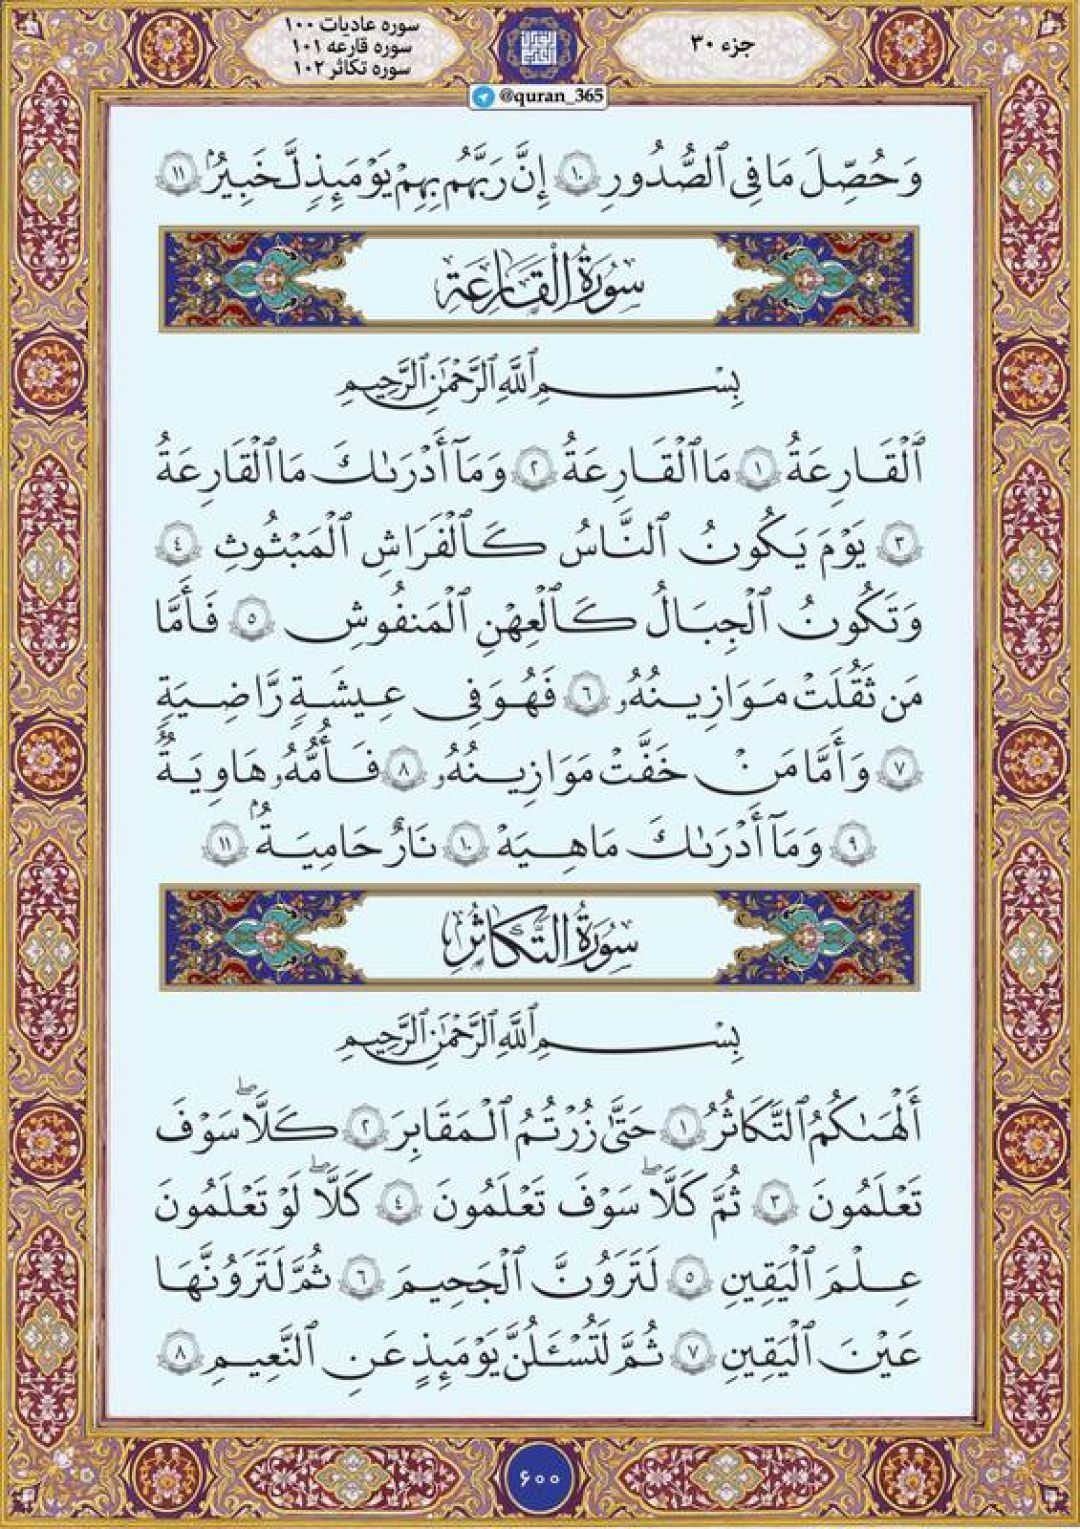 سوره عادیات ۱۰۰
سوره قارعه ۱۰۱
سوره تکاثر ۱۰۲
جزء ۳۰
@quran_365
وَحُصِّلَ مَا فِى ٱلصُّدُورِ ١٠ إِنَّ رَبَّهُم بِهِمْ يَوْمَئِذٍ لَّخَبِيرٌۢ ١١
سُورَةُ الْقَارِعَةِ
بِسْمِ ٱللَّهِ ٱلرَّحْمَٰنِ ٱلرَّحِيمِ
ٱلْقَارِعَةُ ١ مَا ٱلْقَارِعَةُ ٢ وَمَآ أَدْرَىٰكَ مَا ٱلْقَارِعَةُ
٣ يَوْمَ يَكُونُ ٱلنَّاسُ كَٱلْفَرَاشِ ٱلْمَبْثُوثِ ٤
وَتَكُونُ ٱلْجِبَالُ كَٱلْعِهْنِ ٱلْمَنفُوشِ ٥ فَأَمَّا
مَن ثَقُلَتْ مَوَازِينُهُۥ ٦ فَهُوَ فِى عِيشَةٍ رَّاضِيَةٍ
٧ وَأَمَّا مَنْ خَفَّتْ مَوَازِينُهُۥ ٨ فَأُمُّهُۥ هَاوِيَةٌ
٩ وَمَآ أَدْرَىٰكَ مَا هِيَهْ ١٠ نَارٌ حَامِيَةٌۢ ١١
سُورَةُ التَّكَاثُرِ
بِسْمِ ٱللَّهِ ٱلرَّحْمَٰنِ ٱلرَّحِيمِ
أَلْهَىٰكُمُ ٱلتَّكَاثُرُ ١ حَتَّىٰ زُرْتُمُ ٱلْمَقَابِرَ ٢ كَلَّا ۖ سَوْفَ
تَعْلَمُونَ ٣ ثُمَّ كَلَّا ۖ سَوْفَ تَعْلَمُونَ ٤ كَلَّا ۖ لَوْ تَعْلَمُونَ
عِلْمَ ٱلْيَقِينِ ٥ لَتَرَوُنَّ ٱلْجَحِيمَ ٦ ثُمَّ لَتَرَوُنَّهَا
عَيْنَ ٱلْيَقِينِ ٧ ثُمَّ لَتُسْـَٔلُنَّ يَوْمَئِذٍ عَنِ ٱلنَّعِيمِ ٨
۶۰۰